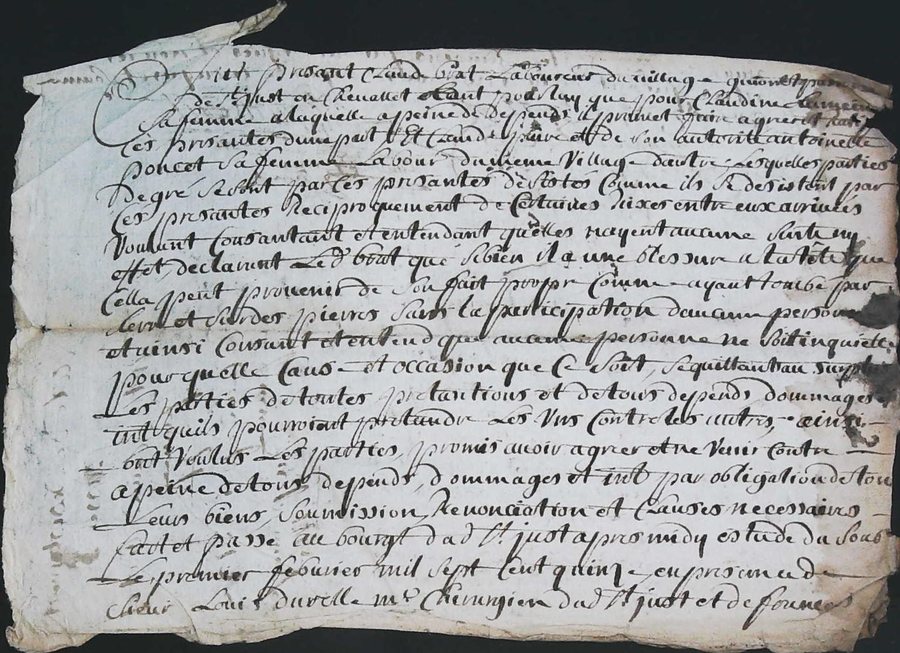 fut presant Claude brat Laboureur du village
de St just en Chevallet etant pour luy que pour Claudine
sa femme a laquelle a peine de depends a promet faire agreer
ces presantes dune part Et Claude et de son autorite antoinette
poncet sa femme Labour du meme village dautre Lesquelles parties
de gré se sont par ces presantes desistés Comme ils se desistent par
ces presantes Reciproquement de Certaines rixes entre eux arrivées
voullant Consantant et entendant quelles nayent aucune suitte ny
effet declarant Le d brat que sibien il a une blessure a la tête que
Cella peut provenir de son fait propre Comme ayant tombé par
terre et sur des pierres sans la participation daucune personne
et ainsi Consant et entend que aucune personne ne soit inquietté
pour quelle Cause et occasion que Ce soit, se quittant au surplus
Les parties de toutes pretantions et de tous depends dommages
int quils pourroient pretandre Les uns Contre les autres, ainsi
voulus Les parties, promis avoir agreer et ne venir Contre
a peine de tous depends, dommages et int par obligation de tous
Leurs biens, soumission, Renonciation et Clauses necessaires
fait et passé au bourgt dud St just apres midy estude du sous
Le premier febvrier mil sept Cent quinze en presance de
sieur Louis durelle me Chirurgien dud St just et de